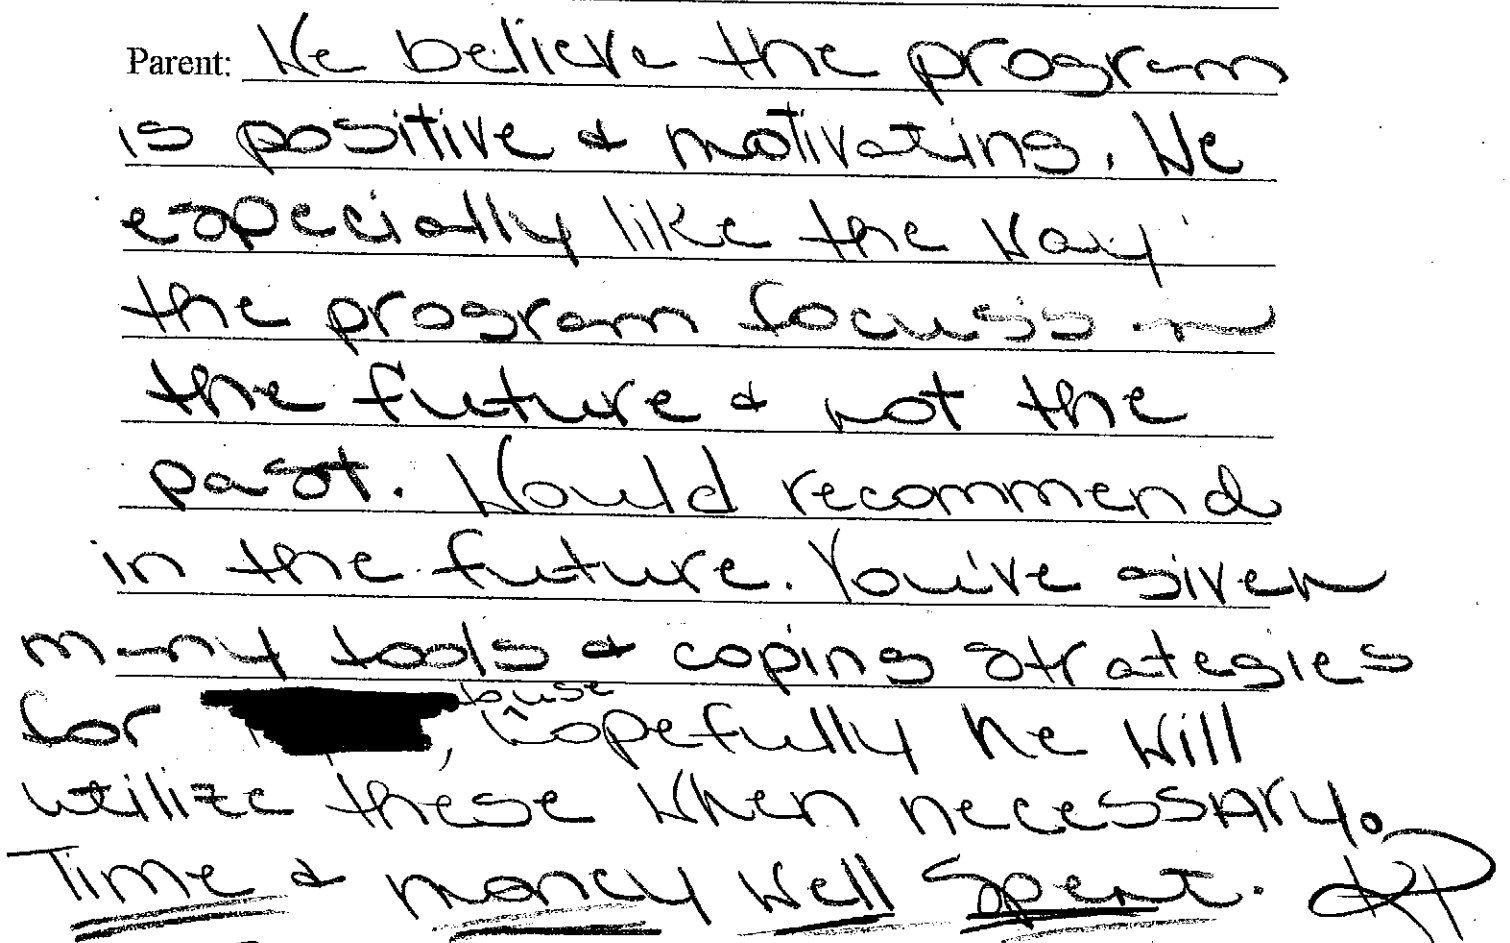 Parent: We believe the program
is positive & motivating. We
especially like the way
the program focuses on
the future & not the
past. Would recommend
in the future. You've given
many tools & coping strategies
for , to use hopefully he will
utilize these when necessary.
Time & money well spent. KP